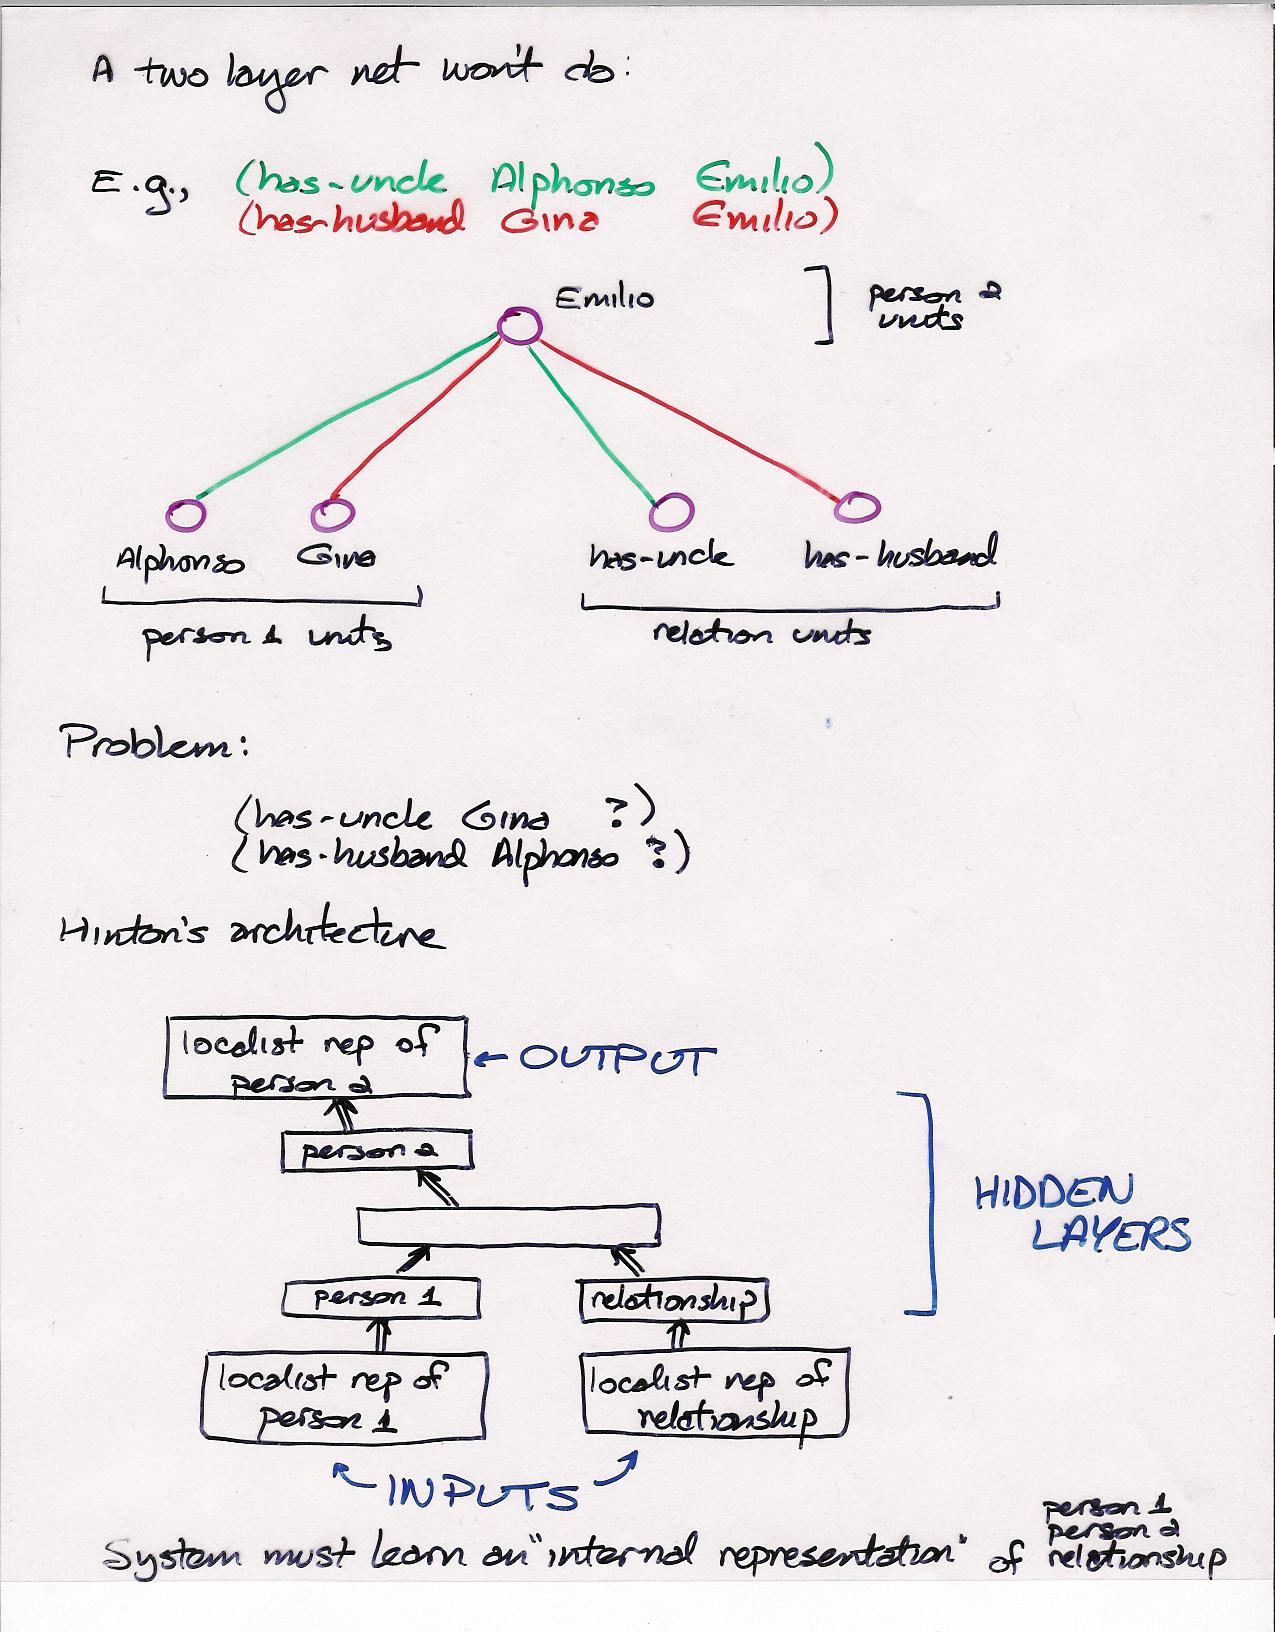 A two layer net won't do:
E.g., (has-uncle Alphonso Emilio)
(has-husband Gina Emilio)
Emilio
person 2
units
Alphonso Gina has-uncle has-husband
person 1 units relation units
Problem:
(has-uncle Gina ?)
(has-husband Alphonso ?)
Hinton's architecture
localist rep of
person 2
← OUTPUT
person 2
HIDDEN
LAYERS
person 1 relationship
localist rep of
person 1
localist rep of
relationship
INPUTS
System must learn an "internal representation" of
person 1
person 2
relationship